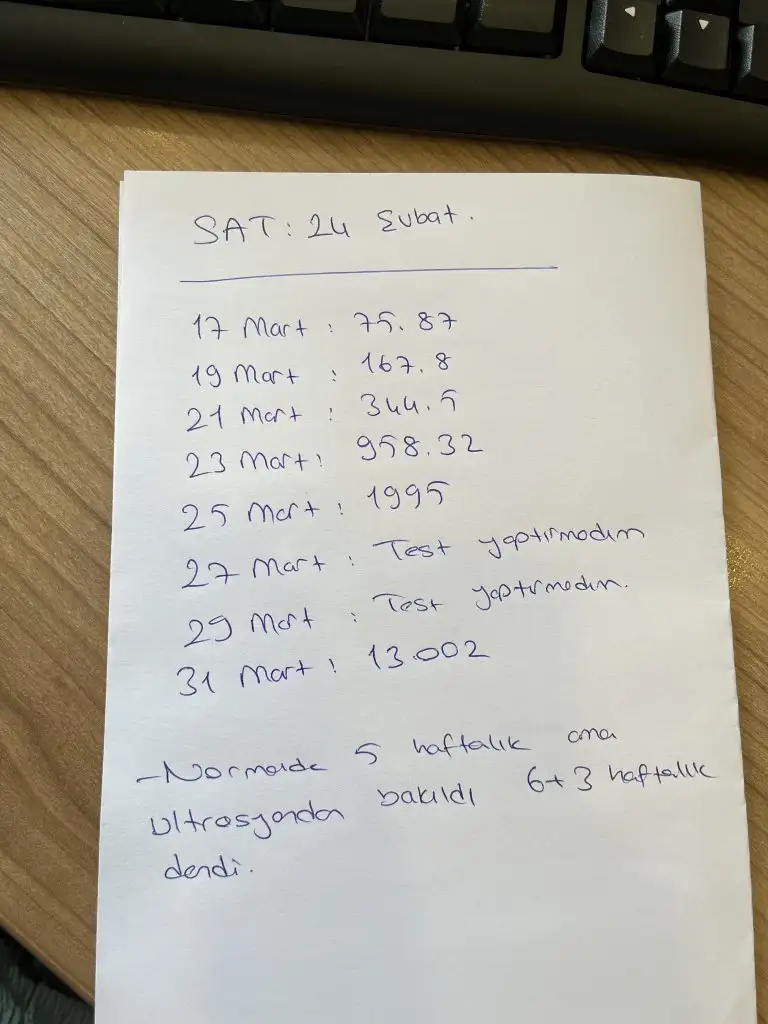 SAT: 24 Şubat.
17 Mart: 75.87
19 Mart: 167.8
21 Mart: 344.5
23 Mart: 958.32
25 Mart: 1995
27 Mart: Test yaptırmadım
29 Mart: Test yaptırmadım.
31 Mart: 13.002
-Normalde 5 haftalık ama
Ultrosyondan bakıldı 6+3 haftalık
dendi.